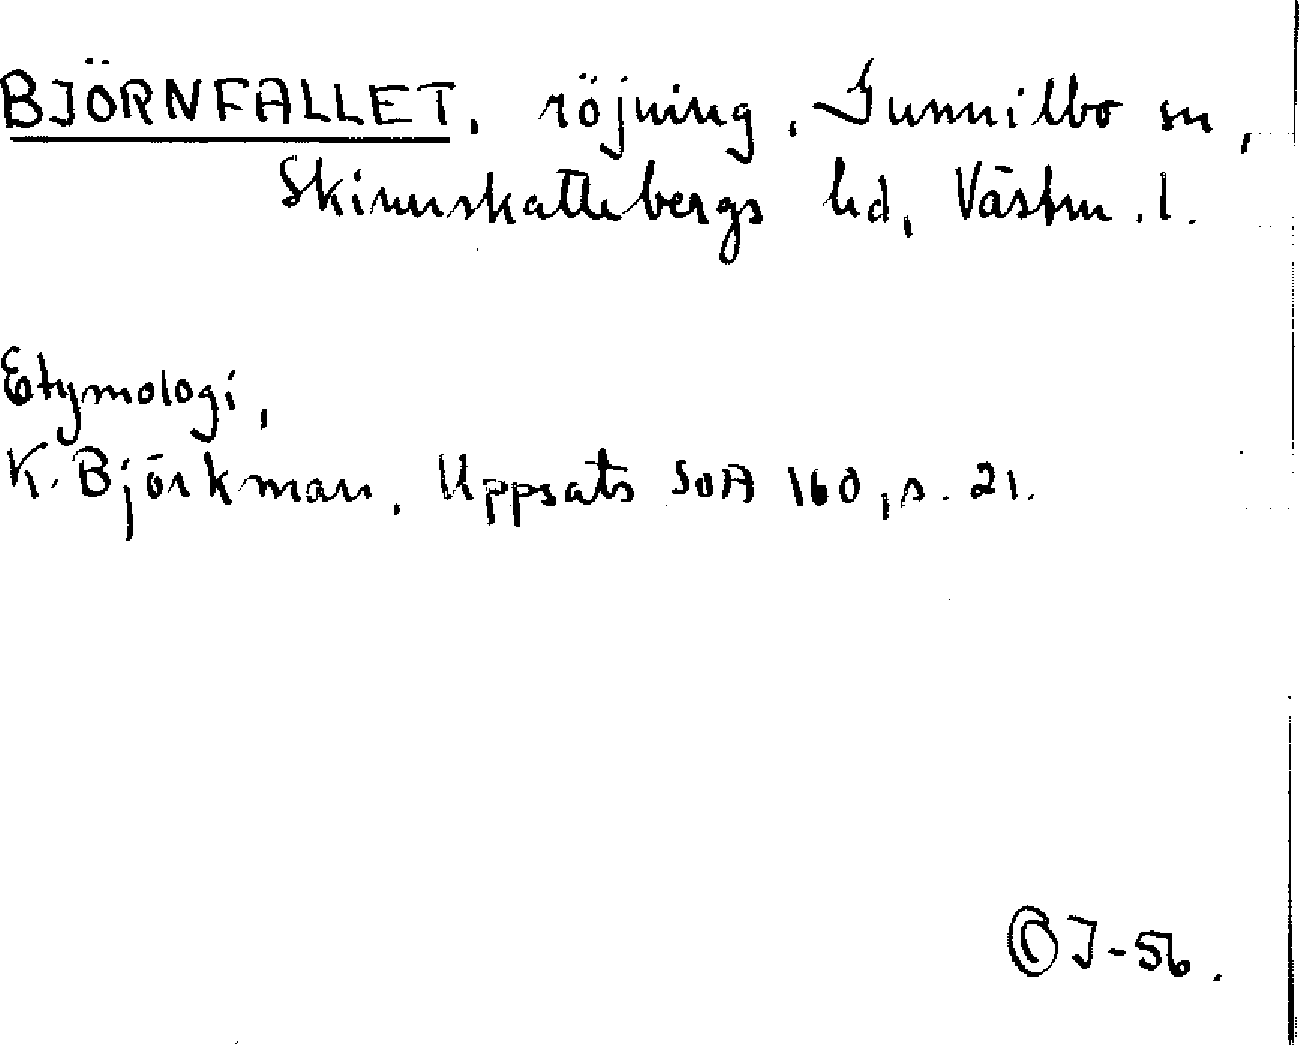 BJÖRNFALLET, röjning, Gunnilbo sn,
Skinnskattebergs hd, Västm. l.
Etymologi,
K. Björkman, Uppsats SOA 160, s. 21.
© J-56.